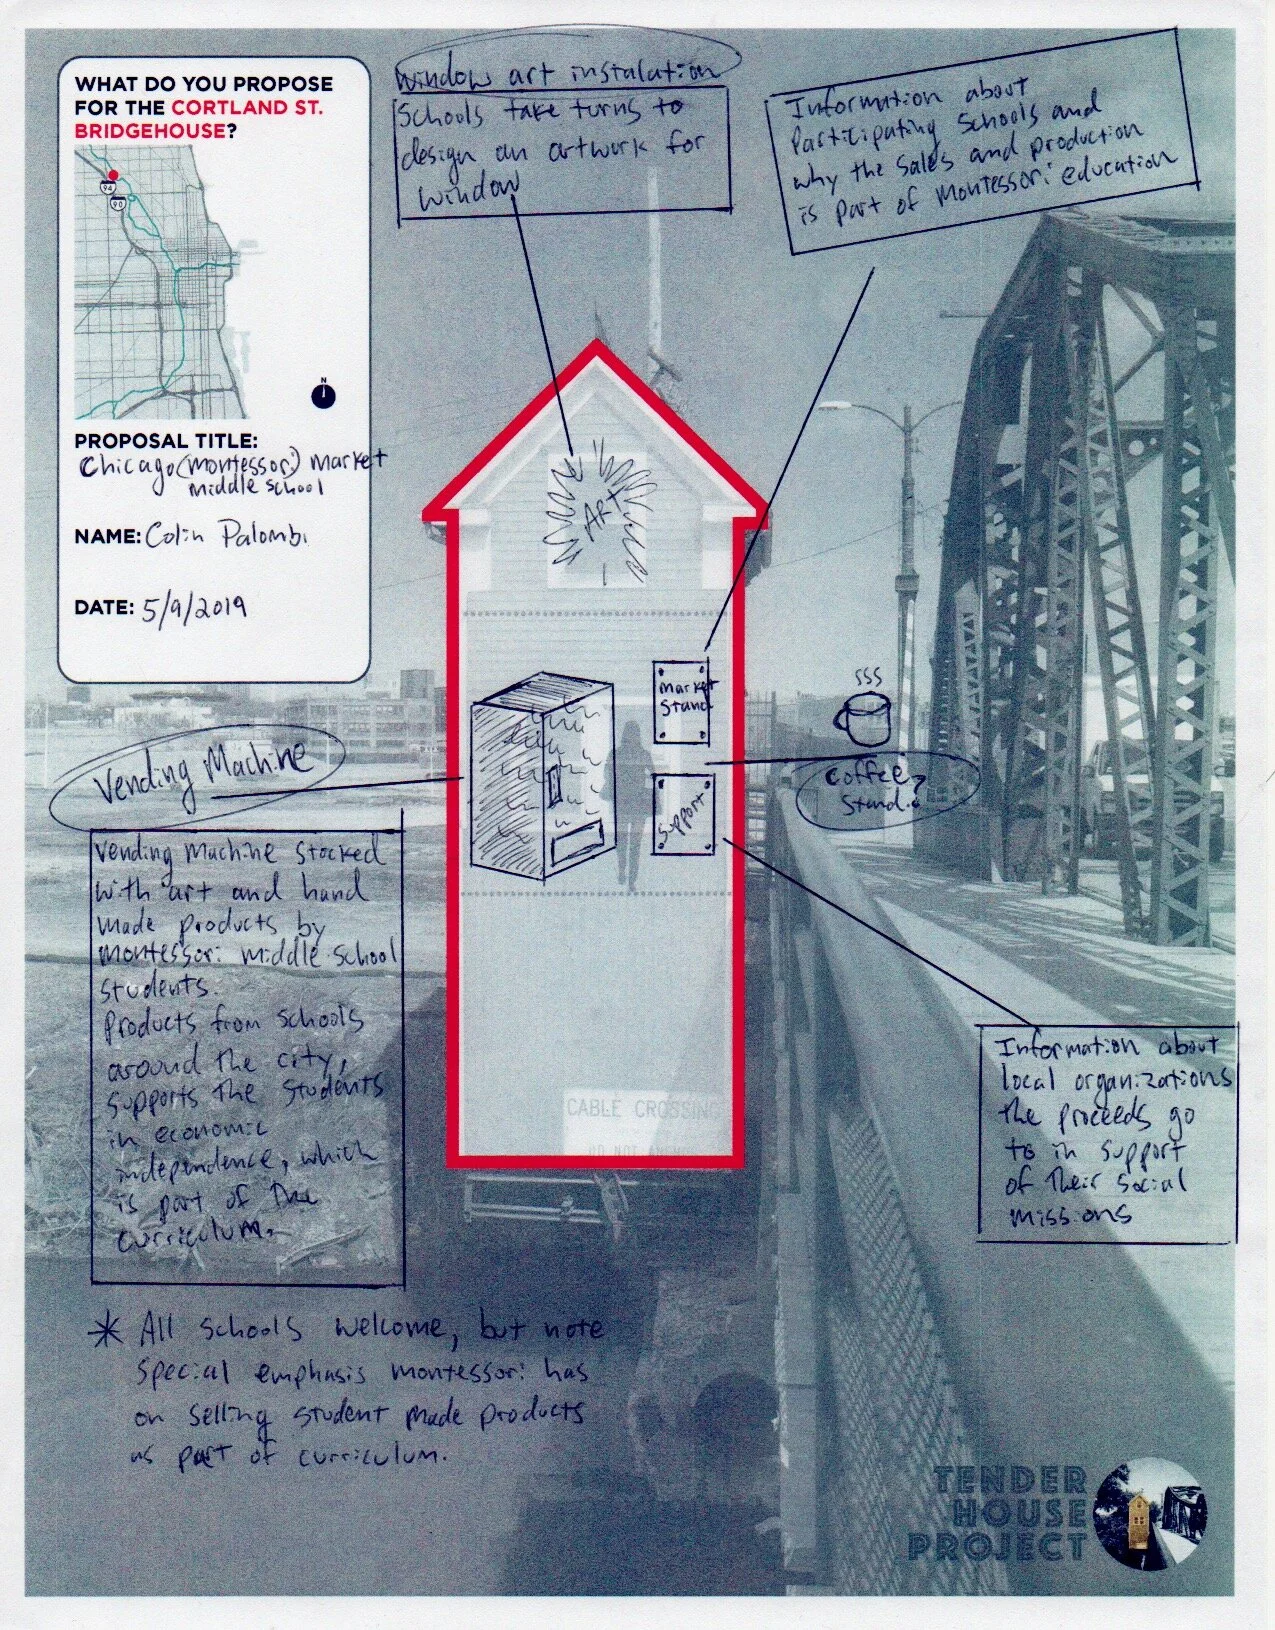 WHAT DO YOU PROPOSE
FOR THE CORTLAND ST.
BRIDGEHOUSE?
94
90
N
PROPOSAL TITLE:
Chicago (Montessori) Market
Middle School
NAME: Colin Palombi
DATE: 5/9/2019
Window art instalation
Schools take turns to
design an artwork for
window
Information about
Participating Schools and
why the sales and production
is part of Montessori education
ART
Market
Stand
Support
Coffee
Stand?
Vending Machine
Vending Machine stocked
with art and hand
made products by
Montessori middle school
students.
Products from schools
around the city,
supports the students
in economic
independence, which
is part of the
curriculum.
Information about
local organizations
the proceeds go
to in support
of their social
missions
CABLE CROSSING
DO NOT
* All schools welcome, but note
special emphasis montessori has
on selling student made products
as part of curriculum.
TENDER
HOUSE
PROJECT